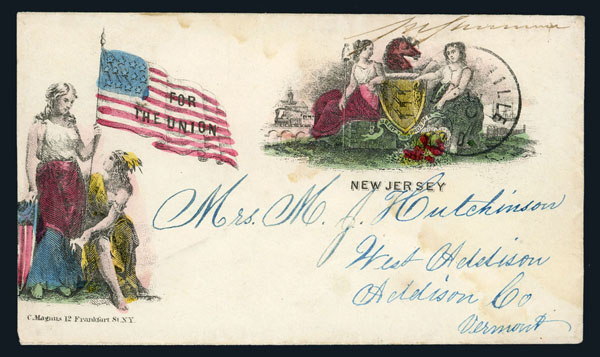 FOR
THE UNION
NEW JERSEY
Mrs. M. J. Hutchinson
West Addison
Addison Co
Vermont
C. Magnus 12 Frankfort St. N.Y.